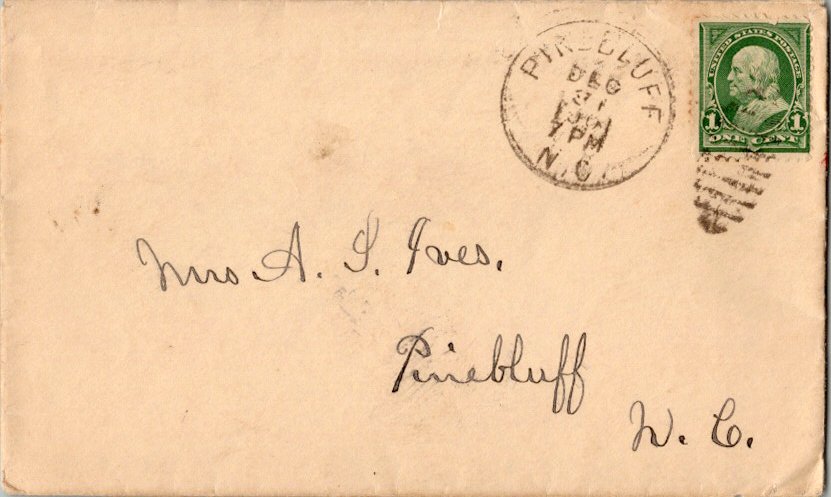 PINEBLUFF
DEC
31
1901
7 PM
N.C.
UNITED STATES POSTAGE
1 1
ONE CENT
Mrs A. S. Ives.
Pinebluff
N. C.